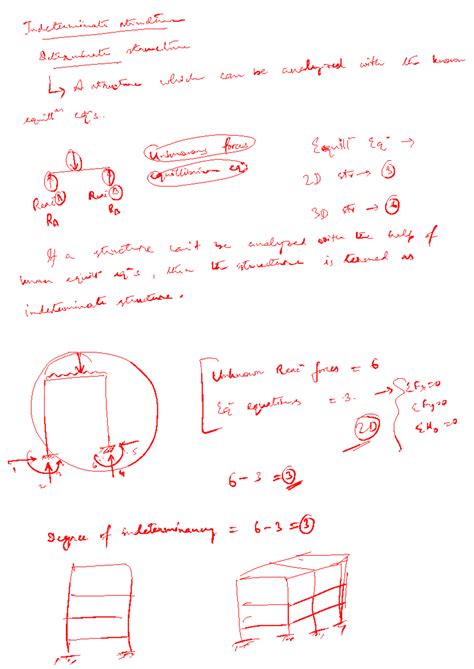 Indeterminate structure
Determinate structure
↳ A structure which can be analyzed with the known
equill^m eq^ns.
Unknowns forces
equillibrium eq^n
Equill^m Eq^n →
2D str → 3
3D str → 6
React A
R_A
React B
R_B
If a structure can't be analyzed with the help of
known equill^m eq^ns, then the structure is termed as
indeterminate structure.
Unknown React^n forces = 6
Eq^m equations = 3.
2D
ΣFx=0
ΣFy=0
ΣM0=0
1
2
3
4
5
6
6-3 = 3
Degree of indeterminancy = 6-3 = 3